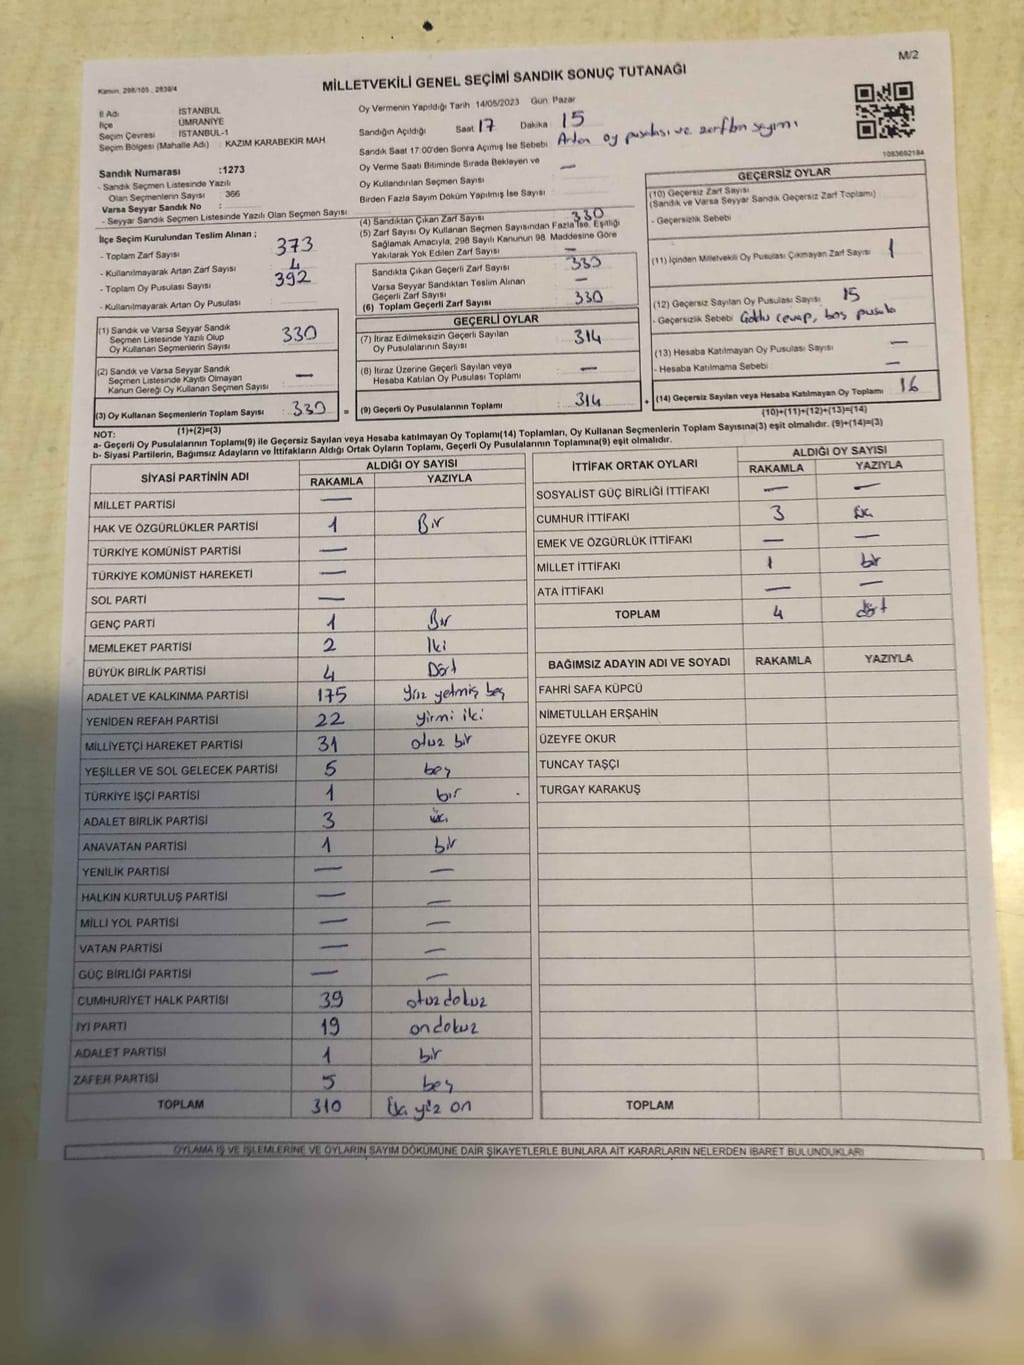 M/2
Kanun, 298/105 , 2839/4
MİLLETVEKİLİ GENEL SEÇİMİ SANDIK SONUÇ TUTANAĞI
İl Adı İSTANBUL
İlçe ÜMRANİYE
Seçim Çevresi İSTANBUL-1
Seçim Bölgesi (Mahalle Adı) : KAZIM KARABEKİR MAH
Oy Vermenin Yapıldığı Tarih 14/05/2023 Gün Pazar
Sandığın Açıldığı Saat 17 Dakika 15
Sandık Saat 17:00'den Sonra Açımış İse Sebebi Artan oy pusulası ve zarfların sayımı
Oy Verme Saati Bitiminde Sırada Bekleyen ve
Oy Kullandırılan Seçmen Sayısı —
Birden Fazla Sayım Döküm Yapılmış İse Sayısı
1083602184
Sandık Numarası :1273
- Sandık Seçmen Listesinde Yazılı
Olan Seçmenlerin Sayısı : 366
Varsa Seyyar Sandık No :
- Seyyar Sandık Seçmen Listesinde Yazılı Olan Seçmen Sayısı
İlçe Seçim Kurulundan Teslim Alınan ;
- Toplam Zarf Sayısı 373
- Kullanılmayarak Artan Zarf Sayısı 4
- Toplam Oy Pusulası Sayısı 392
- Kullanılmayarak Artan Oy Pusulası
(1) Sandık ve Varsa Seyyar Sandık
Seçmen Listesinde Yazılı Olup
Oy Kullanan Seçmenlerin Sayısı 330
(2) Sandık ve Varsa Seyyar Sandık
Seçmen Listesinde Kayıtlı Olmayan
Kanun Gereği Oy Kullanan Seçmen Sayısı —
(3) Oy Kullanan Seçmenlerin Toplam Sayısı : 330
(1)+(2)=(3)
(4) Sandıktan Çıkan Zarf Sayısı 330
(5) Zarf Sayısı Oy Kullanan Seçmen Sayısından Fazla İse, Eşitliği
Sağlamak Amacıyla, 298 Sayılı Kanunun 98. Maddesine Göre
Yakılarak Yok Edilen Zarf Sayısı —
Sandıkta Çıkan Geçerli Zarf Sayısı 330
Varsa Seyyar Sandıktan Teslim Alınan
Geçerli Zarf Sayısı —
(6) Toplam Geçerli Zarf Sayısı 330
GEÇERLİ OYLAR
(7) İtiraz Edilmeksizin Geçerli Sayılan
Oy Pusulalarının Sayısı 314
(8) İtiraz Üzerine Geçerli Sayılan veya
Hesaba Katılan Oy Pusulası Toplamı —
= (9) Geçerli Oy Pusulalarının Toplamı : 314
GEÇERSİZ OYLAR
(10) Geçersiz Zarf Sayısı
(Sandık ve Varsa Seyyar Sandık Geçersiz Zarf Toplamı)
- Geçersizlik Sebebi
(11) İçinden Milletvekili Oy Pusulası Çıkmayan Zarf Sayısı 1
(12) Geçersiz Sayılan Oy Pusulası Sayısı 15
- Geçersizlik Sebebi cevap, boş pusula
(13) Hesaba Katılmayan Oy Pusulası Sayısı —
- Hesaba Katılmama Sebebi —
+ (14) Geçersiz Sayılan veya Hesaba Katılmayan Oy Toplamı 16
(10)+(11)+(12)+(13)=(14)
NOT:
a- Geçerli Oy Pusulalarının Toplamı(9) ile Geçersiz Sayılan veya Hesaba katılmayan Oy Toplamı(14) Toplamları, Oy Kullanan Seçmenlerin Toplam Sayısına(3) eşit olmalıdır. (9)+(14)=(3)
b- Siyasi Partilerin, Bağımsız Adayların ve İttifakların Aldığı Ortak Oyların Toplamı, Geçerli Oy Pusulalarının Toplamına(9) eşit olmalıdır.
SİYASİ PARTİNİN ADI ALDIĞI OY SAYISI
RAKAMLA YAZIYLA
MİLLET PARTİSİ —
HAK VE ÖZGÜRLÜKLER PARTİSİ 1 Bir
TÜRKİYE KOMÜNİST PARTİSİ —
TÜRKİYE KOMÜNİST HAREKETİ —
SOL PARTİ —
GENÇ PARTİ 1 Bir
MEMLEKET PARTİSİ 2 İki
BÜYÜK BİRLİK PARTİSİ 4 Dört
ADALET VE KALKINMA PARTİSİ 175 yüz yetmiş beş
YENİDEN REFAH PARTİSİ 22 yirmi iki
MİLLİYETÇİ HAREKET PARTİSİ 31 otuz bir
YEŞİLLER VE SOL GELECEK PARTİSİ 5 beş
TÜRKİYE İŞÇİ PARTİSİ 1 bir
ADALET BİRLİK PARTİSİ 3
ANAVATAN PARTİSİ 1 bir
YENİLİK PARTİSİ — —
HALKIN KURTULUŞ PARTİSİ — —
MİLLİ YOL PARTİSİ — —
VATAN PARTİSİ — —
GÜÇ BİRLİĞİ PARTİSİ — —
CUMHURİYET HALK PARTİSİ 39 otuzdokuz
İYİ PARTİ 19 ondokuz
ADALET PARTİSİ 1 bir
ZAFER PARTİSİ 5 beş
TOPLAM 310 yüz on
İTTİFAK ORTAK OYLARI ALDIĞI OY SAYISI
RAKAMLA YAZIYLA
SOSYALİST GÜÇ BİRLİĞİ İTTİFAKI — —
CUMHUR İTTİFAKI 3
EMEK VE ÖZGÜRLÜK İTTİFAKI — —
MİLLET İTTİFAKI 1 bir
ATA İTTİFAKI — —
TOPLAM 4 dört
BAĞIMSIZ ADAYIN ADI VE SOYADI RAKAMLA YAZIYLA
FAHRİ SAFA KÜPCÜ
NİMETULLAH ERŞAHİN
ÜZEYFE OKUR
TUNCAY TAŞÇI
TURGAY KARAKUŞ
TOPLAM
OYLAMA İŞ VE İŞLEMLERİNE VE OYLARIN SAYIM DÖKÜMÜNE DAİR ŞİKAYETLERLE BUNLARA AİT KARARLARIN NELERDEN İBARET BULUNDUKLARI